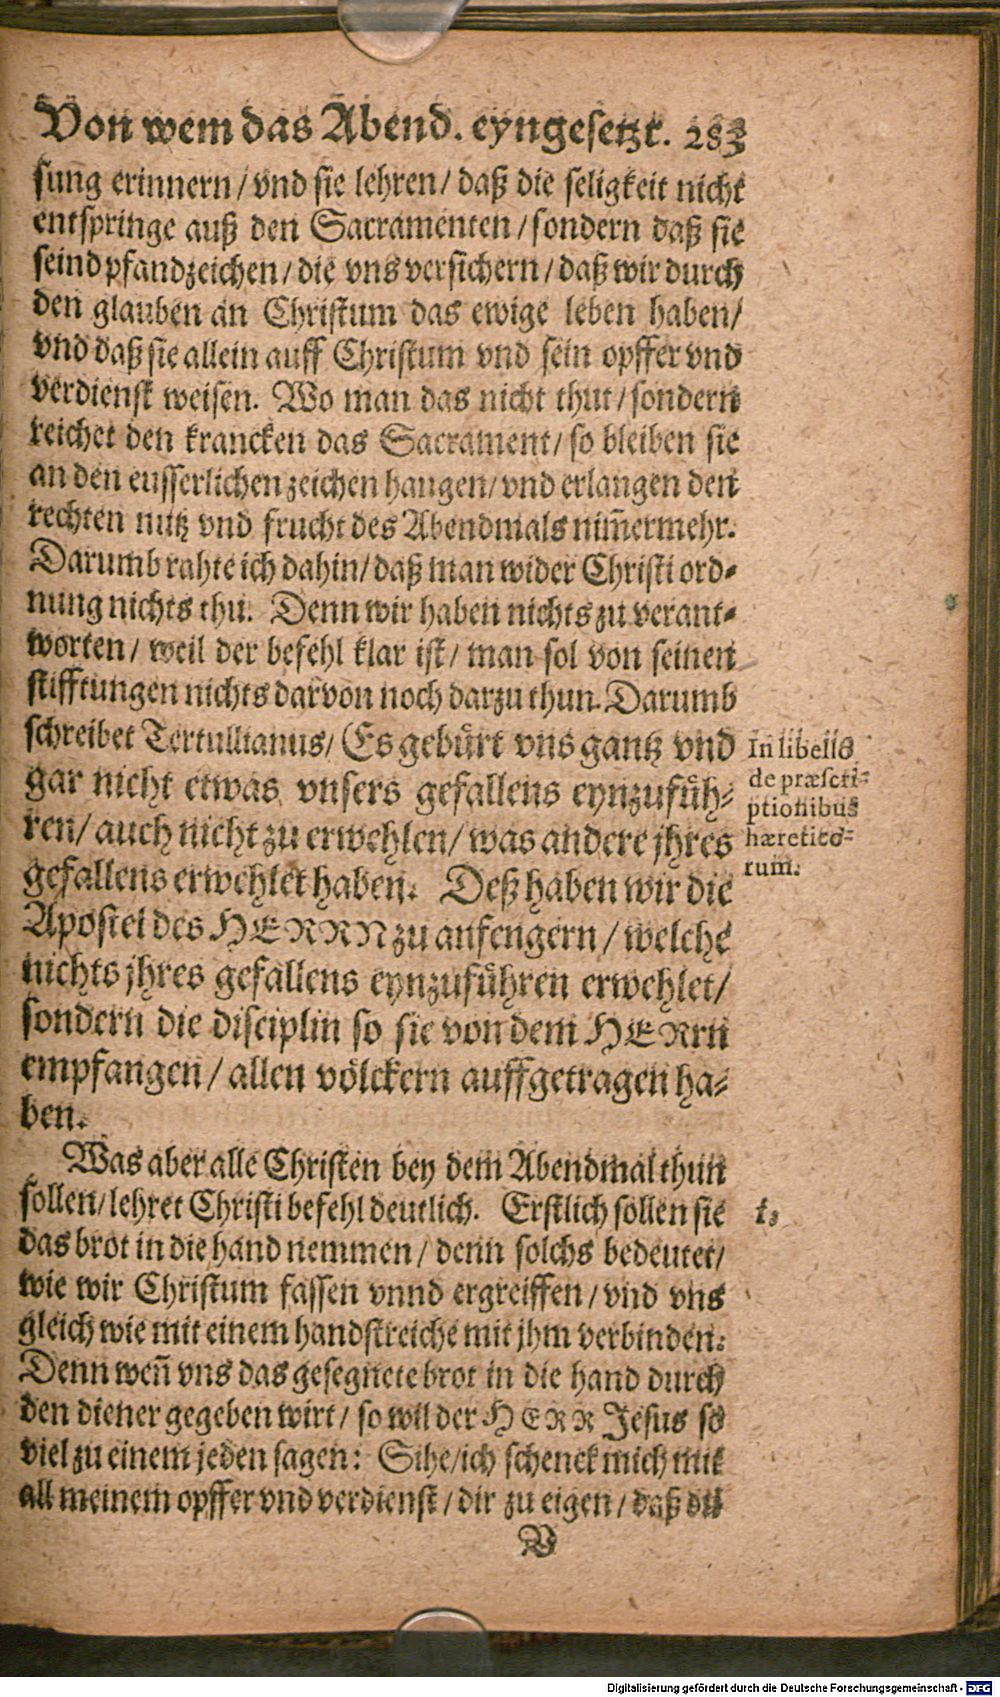 Von wem das Abend. eyngesetzt. 283
sung erinnern / vnd sie lehren / daß die seligkeit nicht
entspringe auß den Sacramenten / sondern daß sie
seind pfandzeichen / die vns versichern / daß wir durch
den glauben an Christum das ewige leben haben /
vnd daß sie allein auff Christum vnd sein opffer vnd
verdienst weisen. Wo man das nicht thut / sondern
reichet den krancken das Sacrament / so bleiben sie
an den eusserlichen zeichen hangen / vnd erlangen den
rechten nutz vnd frucht des Abendmals nim̃ermehr.
Darumb rahte ich dahin / daß man wider Christi ord-
nung nichts thu. Denn wir haben nichts zu verant-
worten / weil der befehl klar ist / man sol von seinen
stifftungen nichts darvon noch darzu thun. Darumb
schreibet Tertullianus / (Es gebürt vns gantz vnd
In libellis
gar nicht etwas vnsers gefallens eynzufüh-
de præscri-
ren / auch nicht zu erwehlen / was andere jhres
ptionibus
hæretico-
gefallens erwehlet haben. Deß haben wir die
rum.
Apostel des HERRN zu anfengern / welche
nichts jhres gefallens eynzuführen erwehlet /
sondern die disciplin so sie von dem HERrn
empfangen / allen völckern auffgetragen ha-
ben.
Was aber alle Christen bey dem Abendmal thun
sollen / lehret Christi befehl deutlich. Erstlich sollen sie
das brot in die hand nemmen / denn solchs bedeutet /
wie wir Christum fassen vnnd ergreiffen / vnd vns
gleich wie mit einem handstreiche mit jhm verbinden.
Denn weñ vns das gesegnete brot in die hand durch
den diener gegeben wirt / so wil der HERR Jesus so
viel zu einem jeden sagen: Sihe / ich schenck mich mit
all meinem opffer vnd verdienst / dir zu eigen / daß du
V
Digitalisierung gefördert durch die Deutsche Forschungsgemeinschaft - DFG